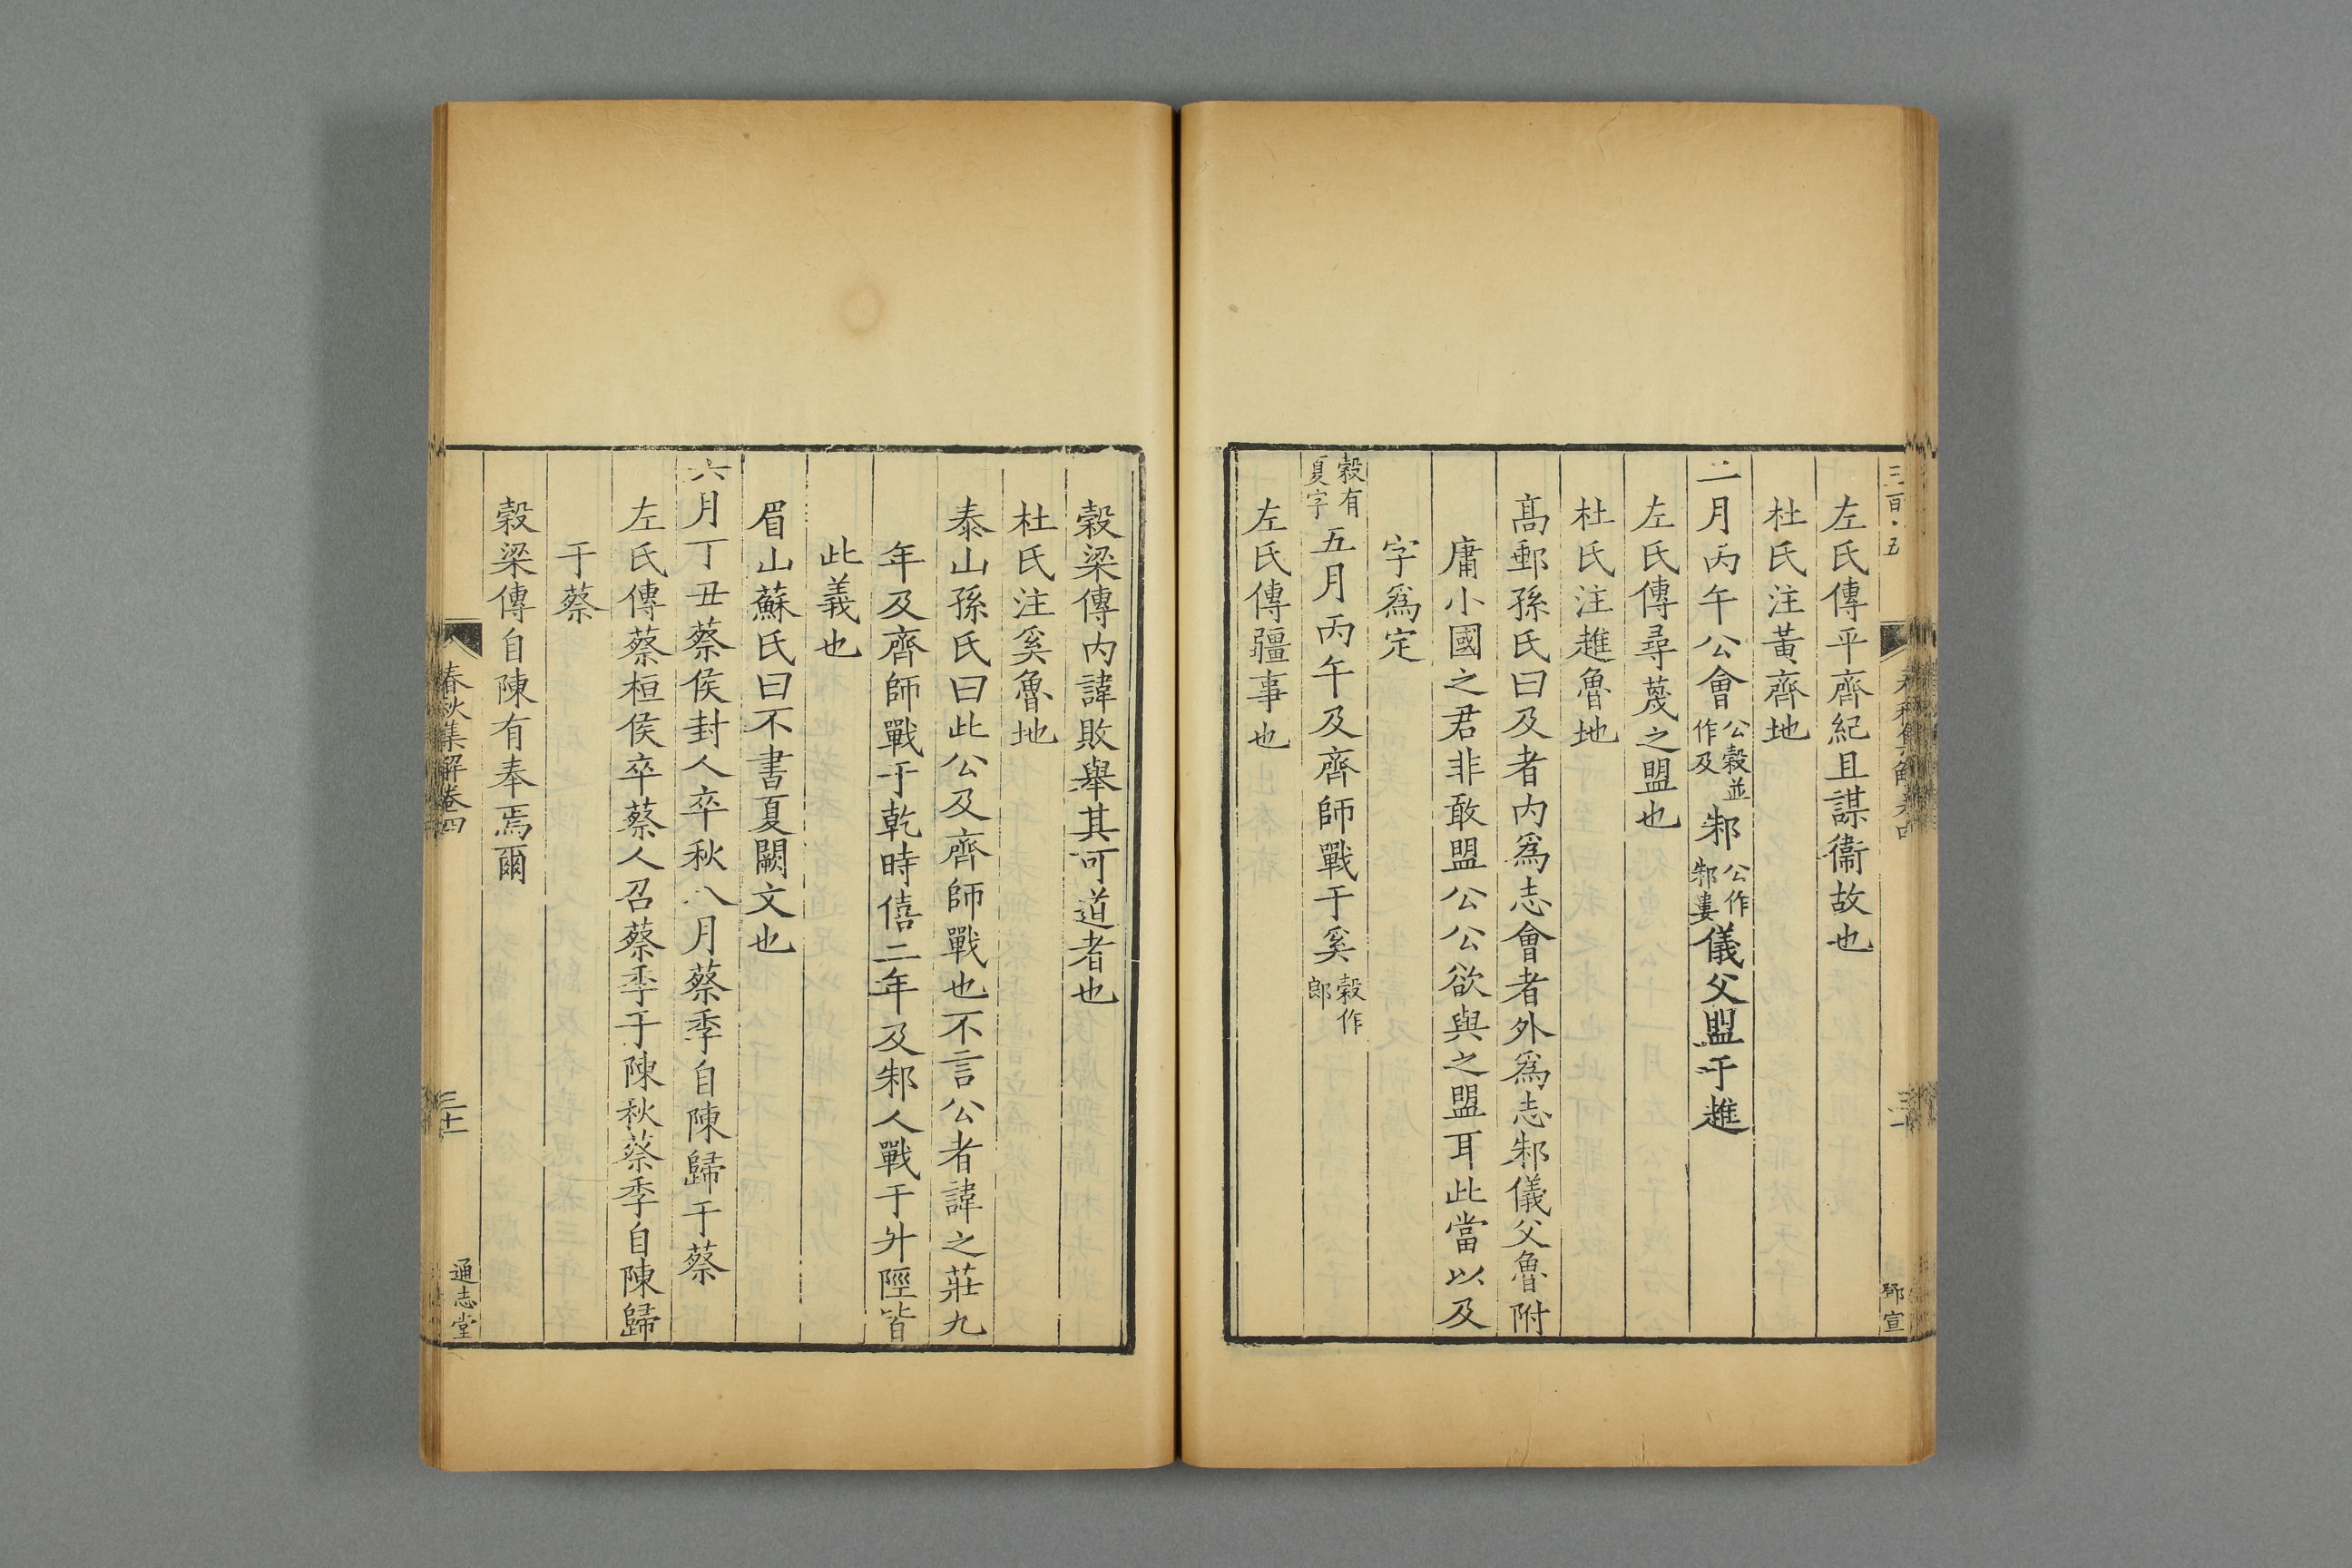 三百·五
春秋集解卷四
三十
鄧宣
左氏傳平齊紀且謀衞故也
杜氏注黃齊地
二月丙午公會公穀並作及邾公作邾婁儀父盟于趡
左氏傳尋蔑之盟也
杜氏注趡魯地
髙郵孫氏曰及者内爲志會者外爲志邾儀父魯附
庸小國之君非敢盟公公欲與之盟耳此當以及
字爲定
穀有夏字五月丙午及齊師戰于奚穀作郎
左氏傳疆事也
穀梁傳内諱敗舉其可道者也
杜氏注奚魯地
泰山孫氏曰此公及齊師戰也不言公者諱之莊九
年及齊師戰于乾時僖二年及邾人戰于升陘皆
此義也
眉山蘇氏曰不書夏闕文也
六月丁丑蔡侯封人卒秋八月蔡季自陳歸于蔡
左氏傳蔡桓侯卒蔡人召蔡季于陳秋蔡季自陳歸
于蔡
穀梁傳自陳有奉焉爾
春秋集解卷四
三十一
通志堂